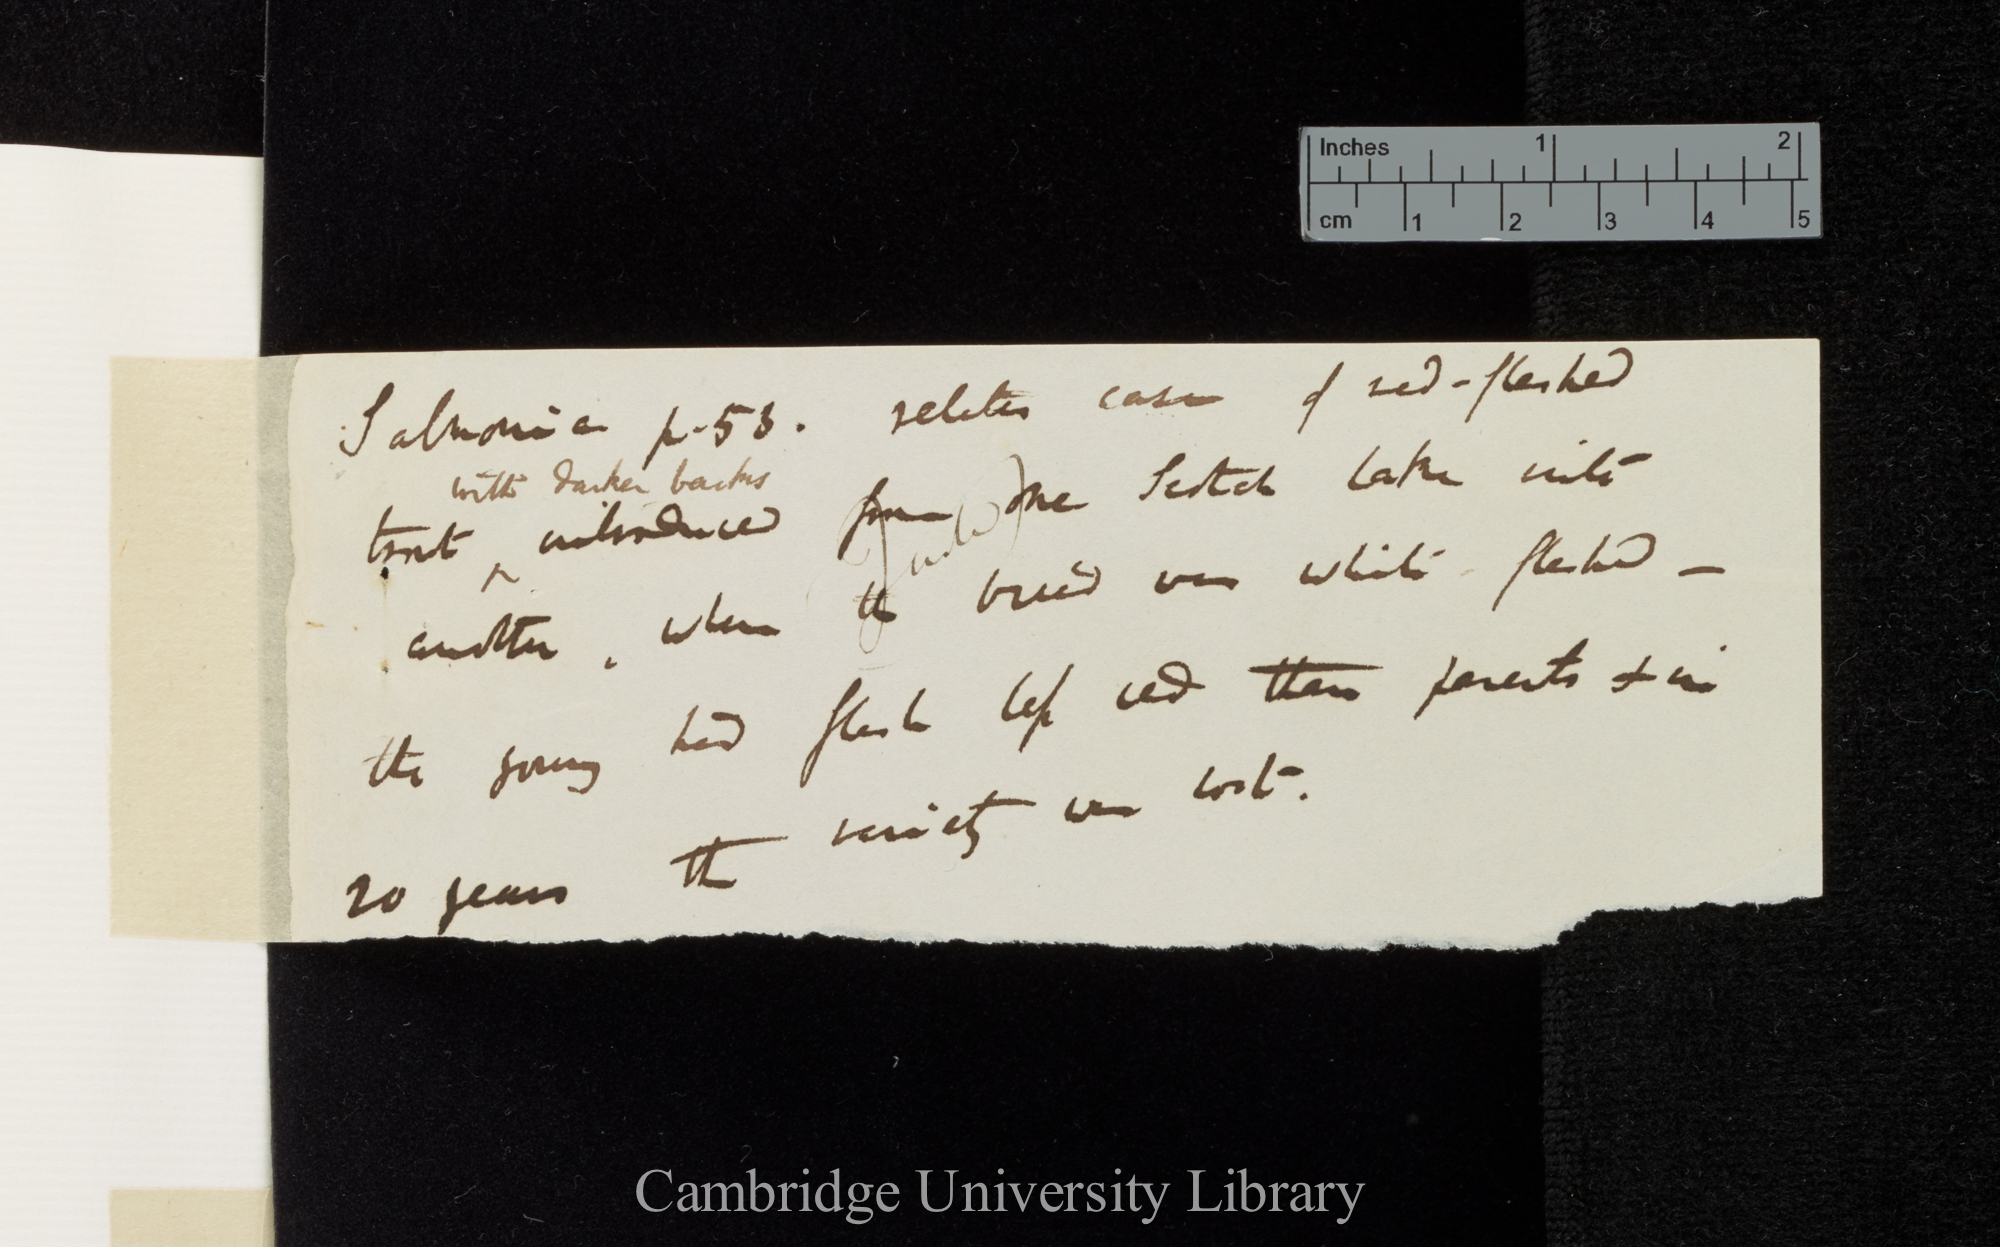 Inches 1 2
cm 1 2 3 4 5
Salmonia p. 53. relates case of red-fleshed
with darker backs
trout ^ introduced from one Scotch lake into
another, where the breed was white fleshed —
the young had flesh less red than parents & in
20 years the variety was lost.
Cambridge University Library